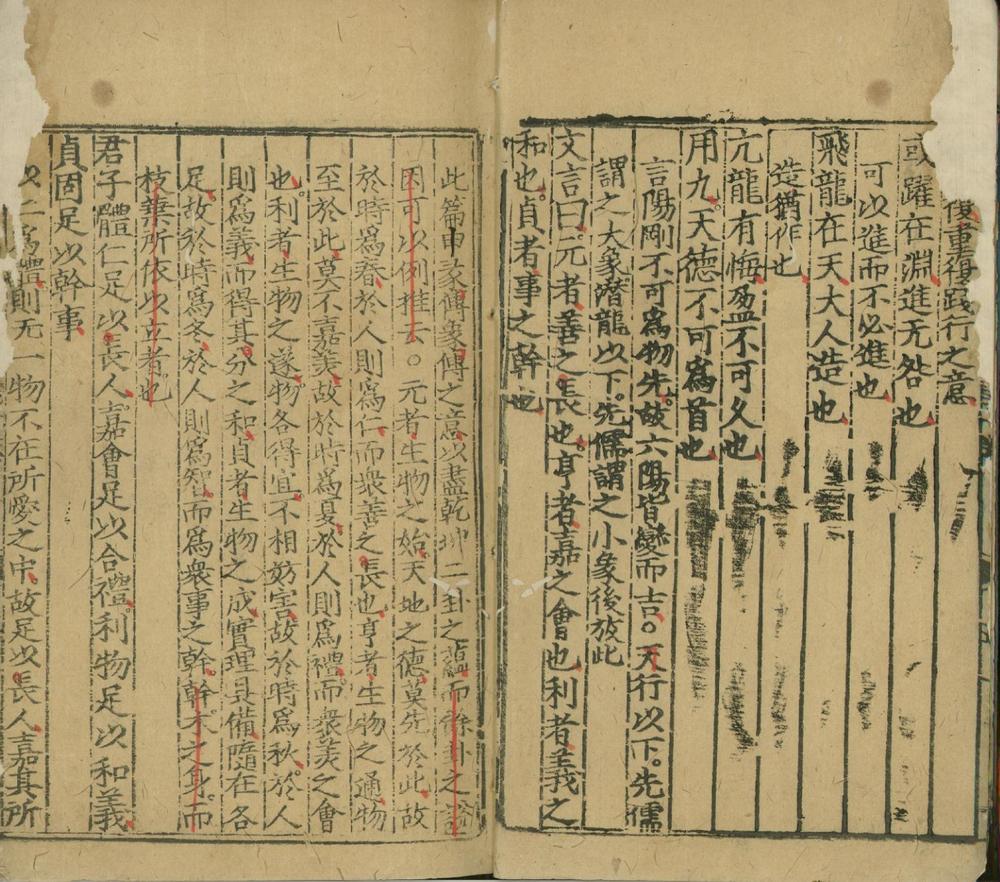 復重復踐行之意
或躍在淵進无咎也
可以進而不必進也
飛龍在天大人造也
造猶作也
亢龍有悔盈不可久也
用九天德不可爲首也
言陽剛不可爲物先故六陽皆變而吉○天行以下先儒
謂之大象潛龍以下先儒謂之小象後放此
文言曰元者善之長也亨者嘉之會也利者義之
和也貞者事之幹也
此篇申彖傳象傳之意以盡乾坤二卦之蘊而餘卦之說
因可以例推云○元者生物之始天地之德莫先於此故
於時爲春於人則爲仁而衆善之長也亨者生物之通物
至於此莫不嘉美故於時爲夏於人則爲禮而衆美之會
也利者生物之遂物各得宜不相妨害故於時爲秋於人
則爲義而得其分之和貞者生物之成實理具備隨在各
足故於時爲冬於人則爲智而爲衆事之幹幹木之身而
枝葉所依以立者也
君子體仁足以長人嘉會足以合禮利物足以和義
貞固足以幹事
以仁爲體則无一物不在所愛之中故足以長人嘉其所